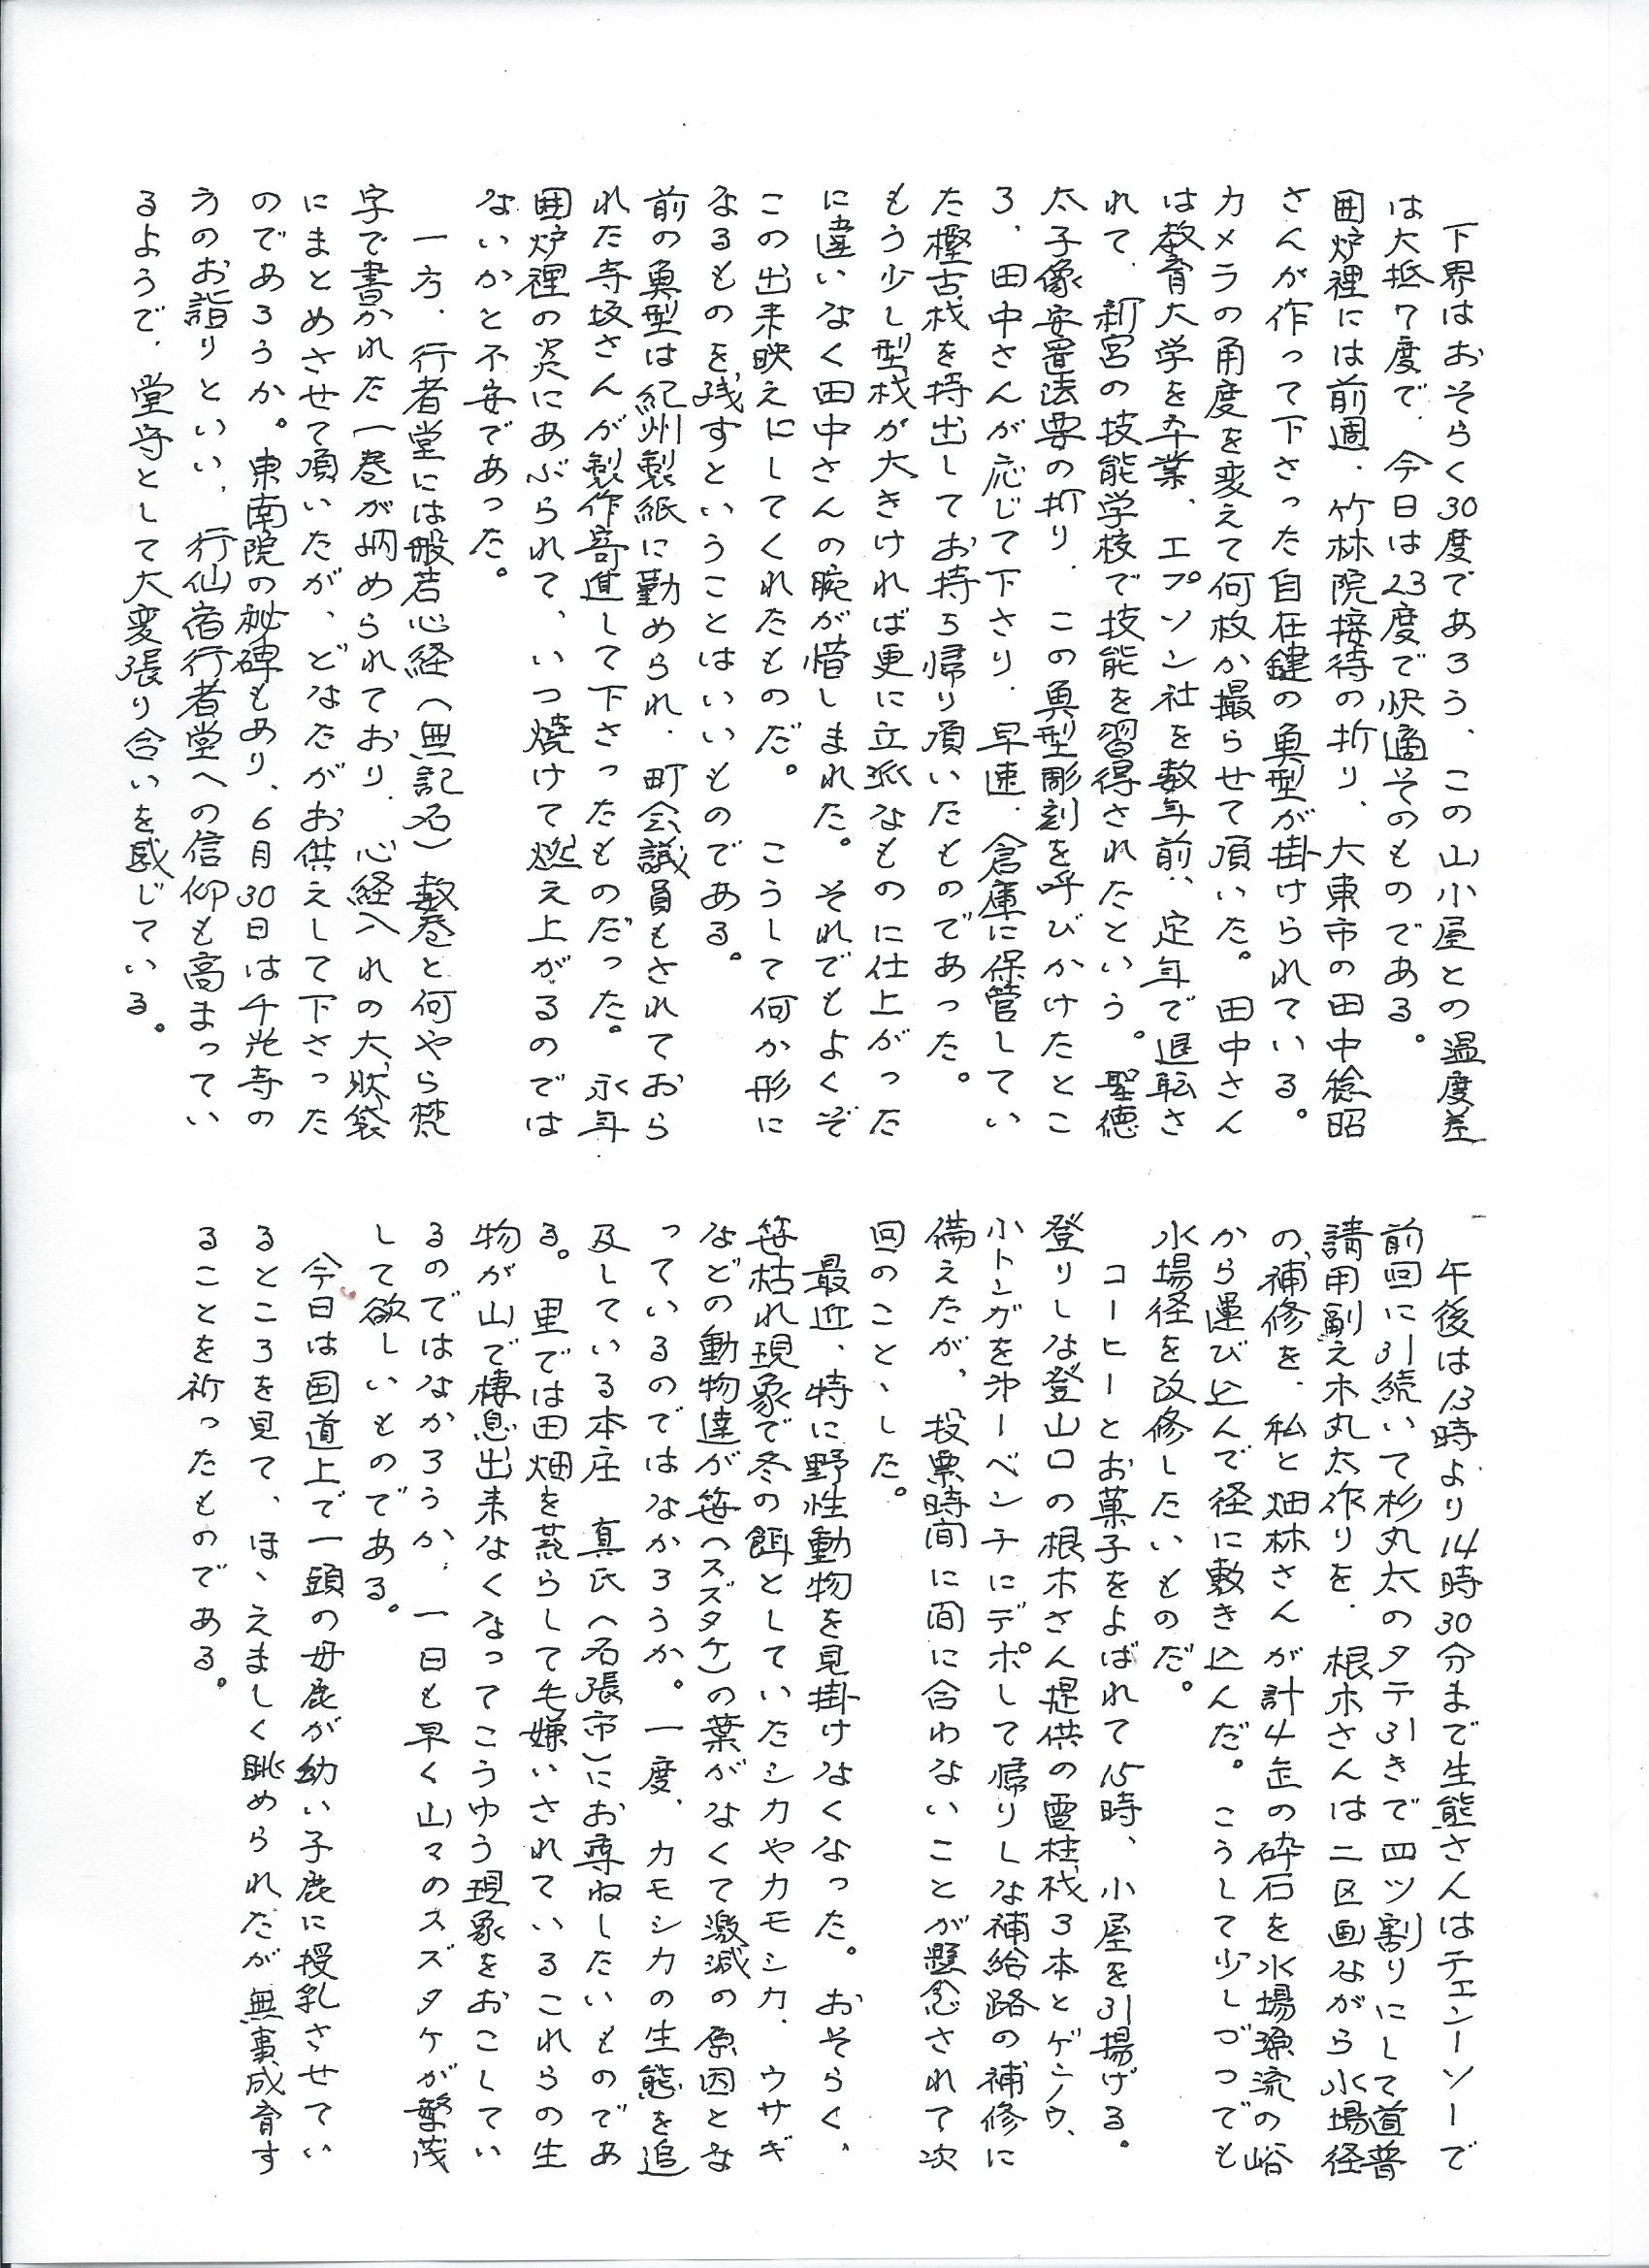 下界はおそらく30度であろう、この山小屋との温度差
は大抵7度で、今日は23度で快適そのものである。
囲炉裡には前週、竹林院接待の折り、大東市の田中稔昭
さんが作って下さった自在鍵の魚型が掛けられている。
カメラの角度を変えて何枚か撮らせて頂いた。田中さん
は教育大学を卒業、エプソン社を数年前、定年で退転さ
れて、新宮の技能学校で技能を習得されたという。聖徳
太子像安置法要の折り、この魚型彫刻を呼びかけたとこ
ろ、田中さんが応じて下さり、早速、倉庫に保管してい
た樫古材を持出してお持ち帰り頂いたものであった。
もう少し型材が大きければ更に立派なものに仕上がった
に違いなく田中さんの腕が惜しまれた。それでもよくぞ
この出来映えにしてくれたものだ。こうして何か形に
なるものを残すということはいいものである。
前の魚型は紀州製紙に勤められ、町会議員もされておら
れた寺坂さんが製作寄進して下さったものだった。永年
囲炉裡の炎にあぶられて、いつ焼けて燃え上がるのでは
ないかと不安であった。
一方、行者堂には般若心経(無記名)数巻と何やら梵
字で書かれた一巻が納められており、心経入れの大状袋
にまとめさせて頂いたが、どなたがお供えして下さった
のであろうか。東南院の秘碑もあり、6月30日は千光寺の
方のお詣りといい、行仙宿行者堂への信仰も高まってい
るようで、堂守として大変張り合いを感じている。
午後は13時より14時30分まで生熊さんはチェンーソーで
前回に引続いて杉丸太のタテ引きで四ツ割りにして道普
請用副え木丸太作りを、根木さんは二区画ながら水場径
の補修を、私と畑林さんが計4缶の砕石を水場源流の峪
から運び込んで径に敷き込んだ。こうして少しづつでも
水場径を改修したいものだ。
コーヒーとお菓子をよばれて15時、小屋を引揚げる。
登りしな登山口の根木さん提供の電柱材3本とゲンノウ、
小トンガを㐧一ベンチにデポして帰りしな補給路の補修に
備えたが、投票時間に間に合わないことが懸念されて次
回のことゝした。
最近、特に野性動物を見掛けなくなった。おそらく、
笹枯れ現象で冬の餌としていたシカやカモシカ、ウサギ
などの動物達が笹(スズタケ)の葉がなくて激減の原因とな
っているのではなかろうか。一度、カモシカの生態を追
及している本庄 真氏(名張市)にお尋ねしたいものであ
る。里では田畑を荒らして毛嫌いされているこれらの生
物が山で棲息出来なくなってこうゆう現象をおこしてい
るのではなかろうか、一日も早く山々のスズタケが繁茂
して欲しいものである。
今日は国道上で一頭の母鹿が幼い子鹿に授乳させてい
るところを見て、ほゝえましく眺められたが無事成育す
ることを祈ったものである。